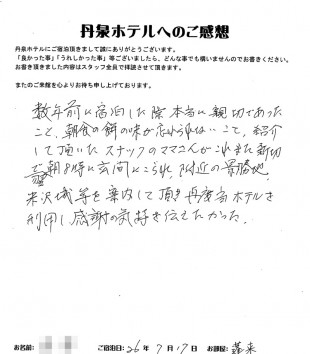 丹泉ホテルへのご感想
丹泉ホテルにご宿泊頂きまして誠にありがとうございます。
「良かった事」「うれしかった事」等ございましたら、どんな事でも構いませんのでお書きください。
お書き頂きました内容はスタッフ全員で拝読させて頂きます。
またのご来館を心よりお待ち申し上げております。
数年前に宿泊した際本当に親切であった
こと、朝食の餅の味が忘れられないこと、紹介
して頂いたスナックのママさんがこれまた親切
で朝8時に玄関にこられ、附近の景勝地、
米沢城等を案内して頂き再度当ホテルを
利用し感謝の気持を伝えたかった。
お名前: ご宿泊日: 26年 7月17日 お部屋: 蓬来